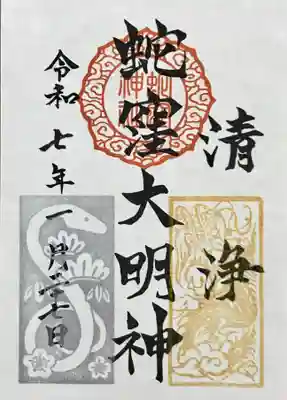 清浄
蛇窪大明神
令和七年一月二十七日